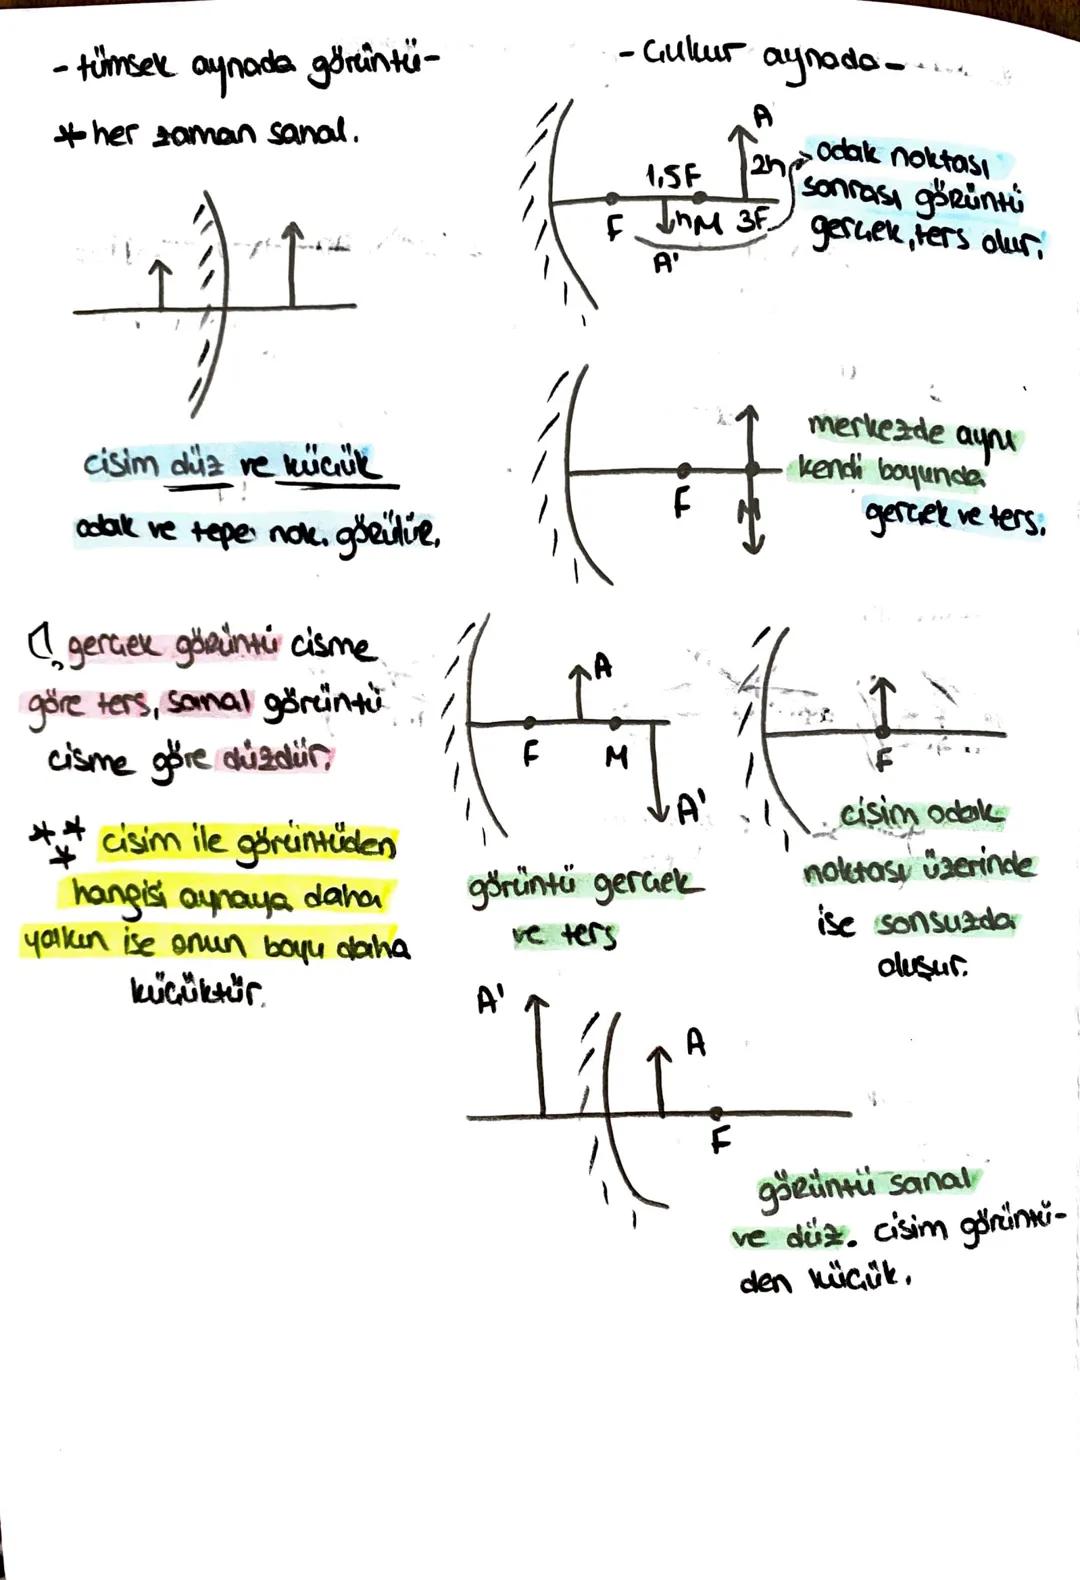 - tümsek aynada görüntü -
* her zaman sanal.
cisim düz ve küçük
odak ve tepe nok. görülür.
gerçek görüntü cisme
göre ters, sanal görüntü
cisme göre düzdür.
*** cisim ile görüntüden
hangisi aynaya daha
yakın ise onun boyu daha
küçüktür.
- Çukur aynada -
A
2h
1,5F
F
h
M
3F
A'
odak noktası
sonrası görüntü
gerçek, ters olur.
F
M
merkezde aynı
kendi boyunda
gerçek ve ters.
A
F
M
A'
görüntü gerçek
ve ters
F
cisim odak
noktası üzerinde
ise sonsuzda
oluşur.
A'
A
F
görüntü sanal
ve düz. cisim görüntü-
den küçük.